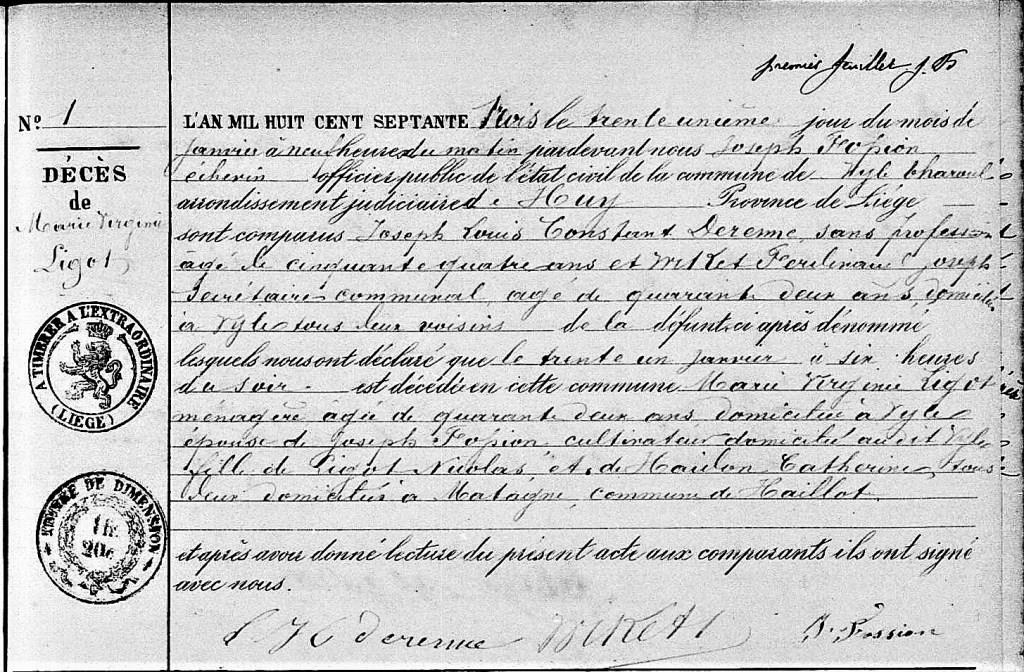 premier feuillet J. F.
Nº 1
DÉCÈS
de
Marie Virginie
Ligot
A TIMBRER A L'EXTRAORDINAIRE
(LIEGE)
TIMBRE DE DIMENSION
1 fr.
20c
L'AN MIL HUIT CENT SEPTANTE trois le trente unième jour du mois de
janvier à neuf heures du matin pardevant nous Joseph Fossion
échevin officier public de l'état civil de la commune de Vyle tharoul
arrondissement judiciaire de Huy Province de Liége
sont comparus Joseph Louis Constant Derenne, sans profession
agé de cinquante quatre ans et Wiket Ferdinand Joseph
Secrétaire communal, agé de quarante deux ans, domiciliés
à Vyle tous deux voisins de la défunte ci après dénommé
lesquels nous ont déclaré que le trente un janvier à six heures
du soir est décédée en cette commune Marie Virginie Ligot
ménagère agée de quarante deux ans, domiciliée à Vyle
épouse de Joseph Fossion cultivateur domicilié audit Vyle
fille de Ligot Nicolas et de Haulon Catherine, tous
deux domiciliés à Matagne, commune de Haillot.
et après avoir donné lecture du présent acte aux comparants ils ont signé
avec nous.
derenne Wiket J. Fossion